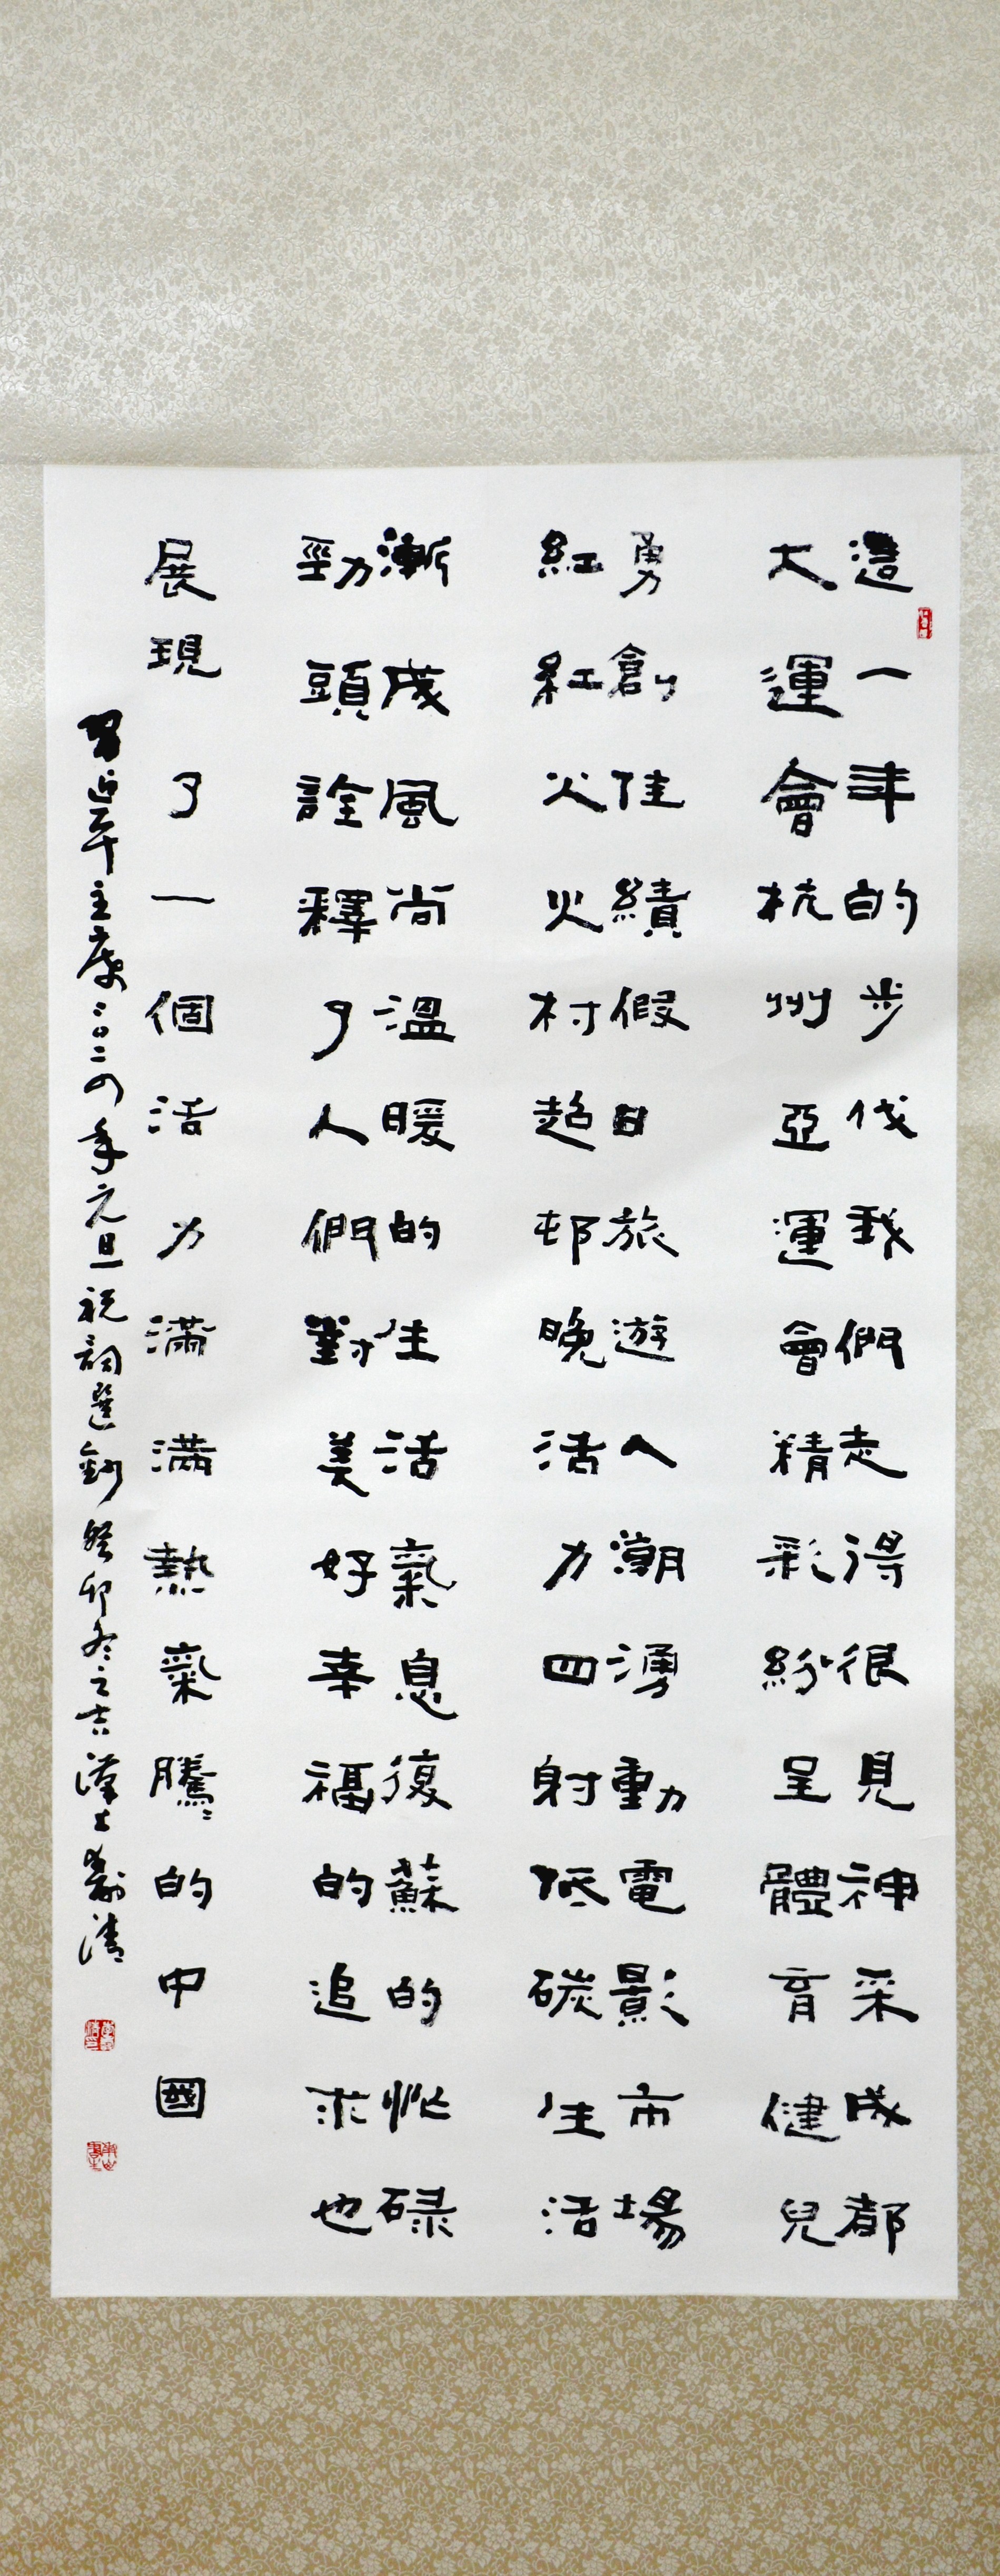 這一年的步伐我們走得很見神采成都
大運會杭州亞運會精彩紛呈體育健兒
勇創佳績假日旅遊人潮湧動電影市場
紅紅火火村超邨晚活力四射低碳生活
漸成風尚溫暖的生活氣息復蘇的忙碌
勁頭詮釋了人們對美好幸福的追求也
展現了一個活力滿滿熱氣騰〻的中國
習近平主席二〇二四年元旦祝詞選鈔癸卯冬之吉漢上